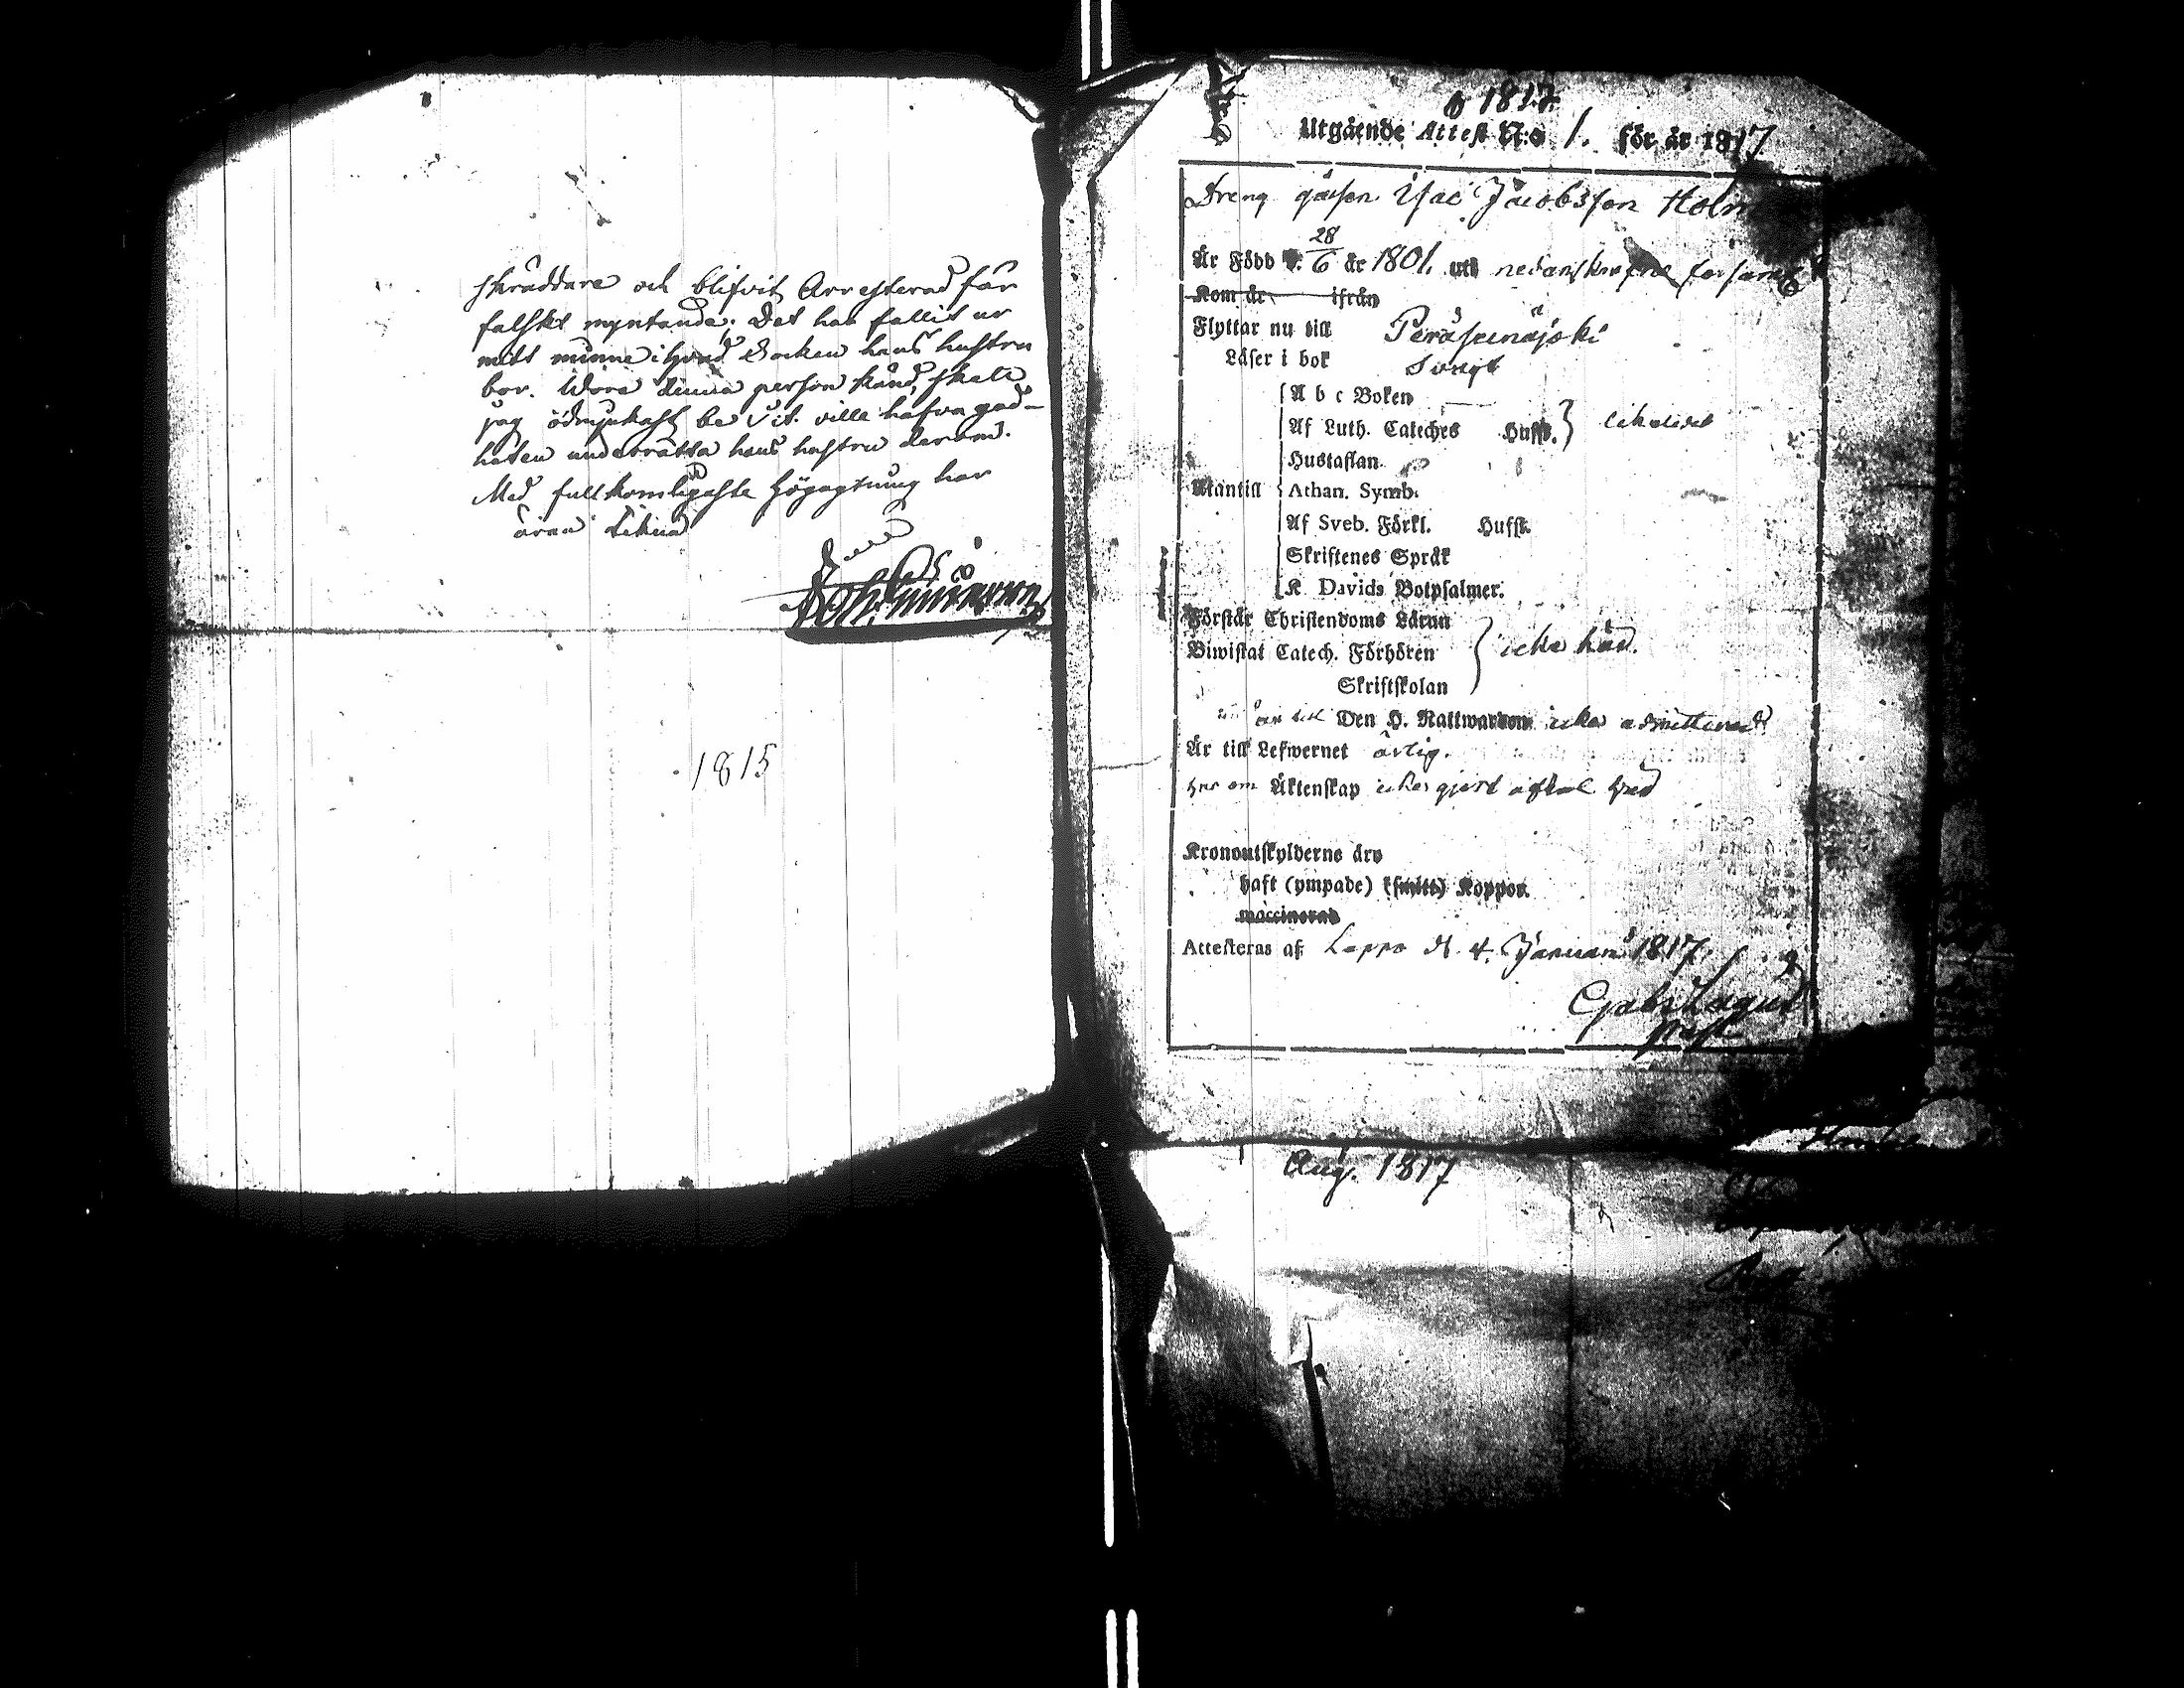 skräddare och blifvit Arresterad för
falskt myntande; Det har fallit ur
mitt minne i hvad Socken hans hustru
bor. Wore denna person känd, skulle
jag ödmjukast be ville hafva god-
heten underrätta hans hustru derom.
Med fullkomligaste Högagtning har
äran teckna
1815
1817
Utgående Attest N:o 1. för år 1817
Dreng gåssen Isac Jacobsson Holm
Är Född d. 28/6 år 1801. uti nedanskrefne församl
Kom år ifrån
Flyttar nu till Peräseinäjoki
Läser i bok svagt
A b c Boken
Af Luth. Cateches Hufst. } likaledes
Hustaflan
Utantill Athan. Symb.
Af Sveb. Förkl. Hufst.
Skriftenes Språk
K. Davids Botpsalmer.
Förstår Christendoms Läran
Biwistat Catech. Förhören } icke här.
Skriftskolan
är till Den H. Nattwarden icke admitterad
Är till Lefwernet ärlig.
Har om Äktenskap icke gjort aftal här
Kronoutskylderne äro
haft (ympade) (smitt) Koppor.
waccinerad
Attesteras af Lappo d. 4. Januarii 1817.
Gabr Lagus
Past
Aug. 1817